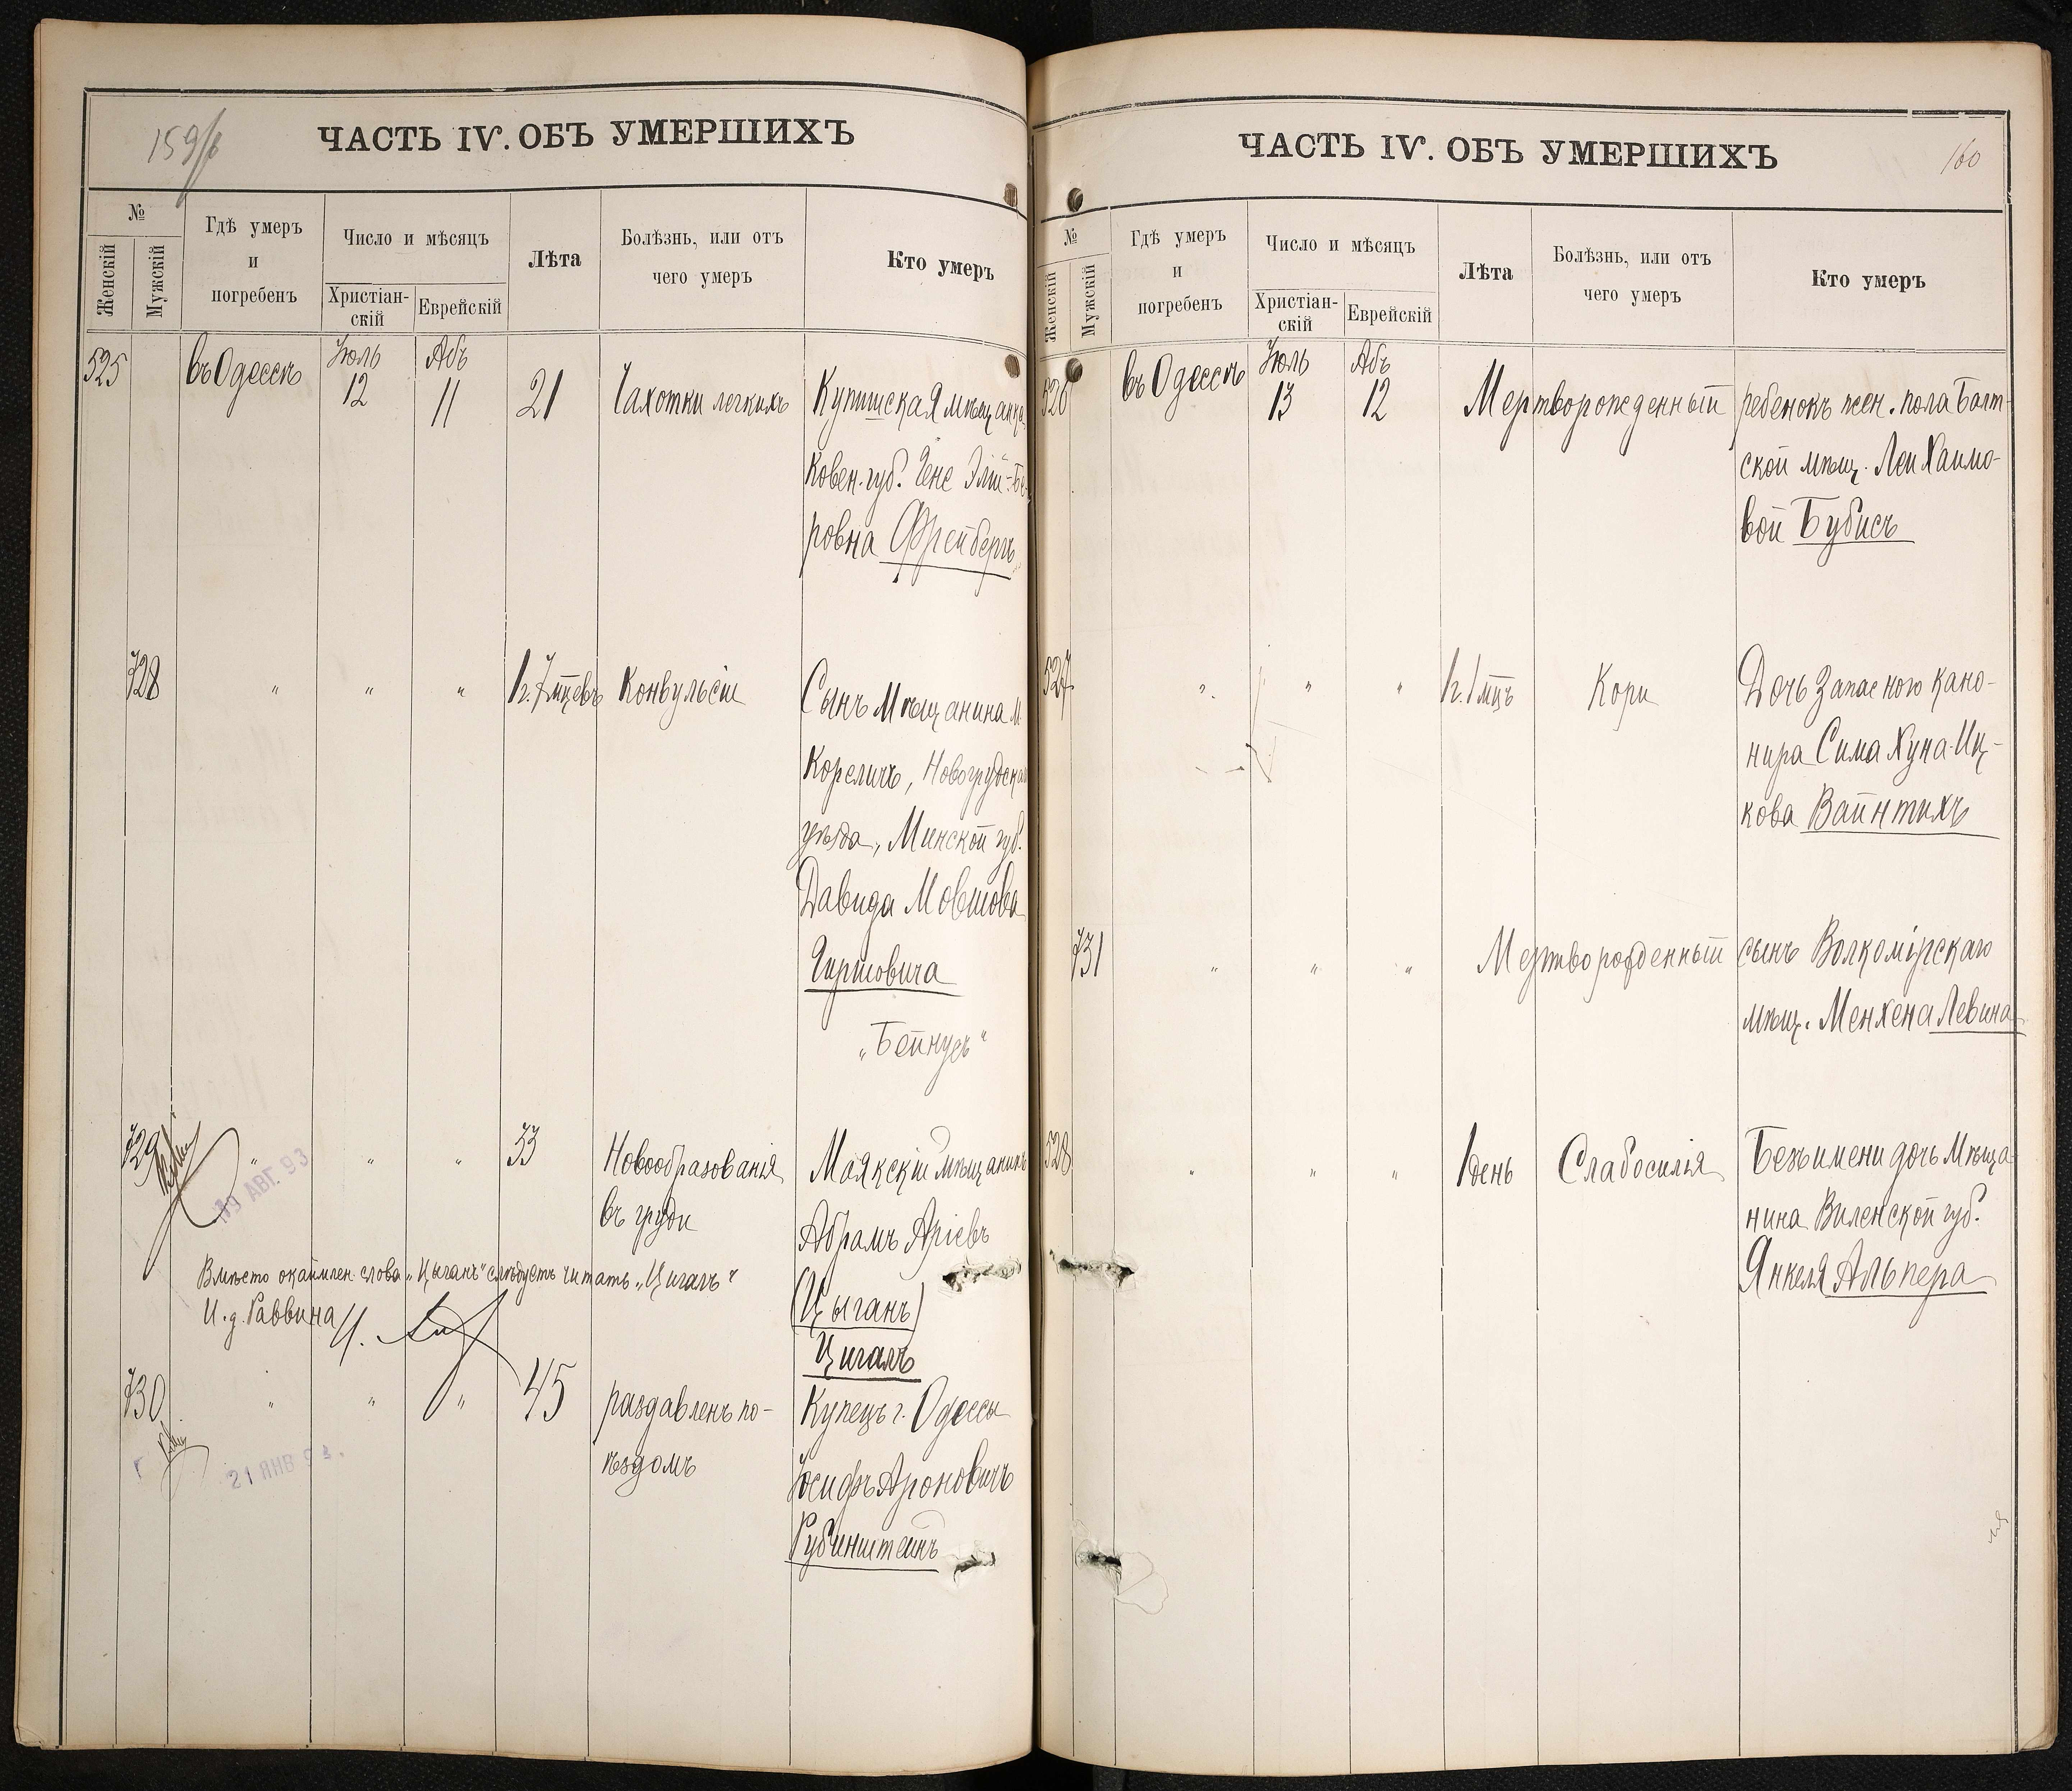 159/б
ЧАСТЬ IV. ОБЪ УМЕРШИХЪ
№
Женскій
Мужскій
Гдѣ умеръ
и
погребенъ
Число и мѣсяцъ
Христіан-
скій
Еврейскій
Лѣта
Болѣзнь, или отъ
чего умеръ
Кто умеръ
525 въ Одессѣ Іюль 12 Абъ 11 21 Чахотки легкихъ Купишская мѣщанка
Ковен. губ. Гене Элій-Бе-
ровна Фрейбергъ
728 " " " 1 г. 7 мцевъ Конвульсіи Сынъ Мѣщанина м.
Кореличъ, Новогрудска
уѣзда, Минской губ.
Давида Мовшова
Гиршовича
"Бейнусъ"
729 " " " 53 Новообразованія Маякскій мѣщанинъ
въ груди Абрамъ Аріевъ
(Цыганъ)
Цигалъ
19 АВГ. 93
Вмѣсто окаймлен. слова "Цыганъ" слѣдуетъ читать "Цигалъ"
И. д. Раввина
730 " " " 45 раздавленъ по- Купецъ г. Одессы
ѣздомъ Іосифъ Ароновичъ
Рубинштейнъ
21 ЯНВ
ЧАСТЬ IV. ОБЪ УМЕРШИХЪ
160
№
Женскій
Мужскій
Гдѣ умеръ
и
погребенъ
Число и мѣсяцъ
Христіан-
скій
Еврейскій
Лѣта
Болѣзнь, или отъ
чего умеръ
Кто умеръ
526 въ Одессѣ Іюль 13 Абъ 12 Мертворожденный ребенокъ жен. пола Балт-
ской мѣщ. Леи Хаимо-
вой Бубисъ
527 " " " 1 г. 1 мцъ Кори Дочь Запасного кано-
нира Сима Хуна-Иц-
кова Вайнтихъ
731 " " " Мертворожденный сынъ Волкомірскаго
мѣщ. Менхена Левина
528 " " " 1 день Слабосилія Безъимени дочь Мѣща-
нина Виленской губ.
Янкеля Альпера